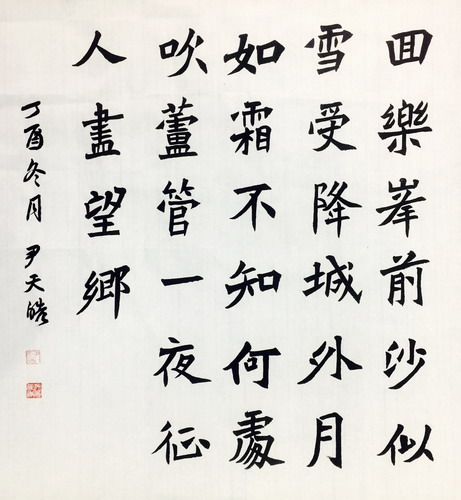 囬樂峯前沙似
雪受降城外月
如霜不知何處
吹蘆管一夜征
人盡望鄉
丁酉冬月 尹天皓